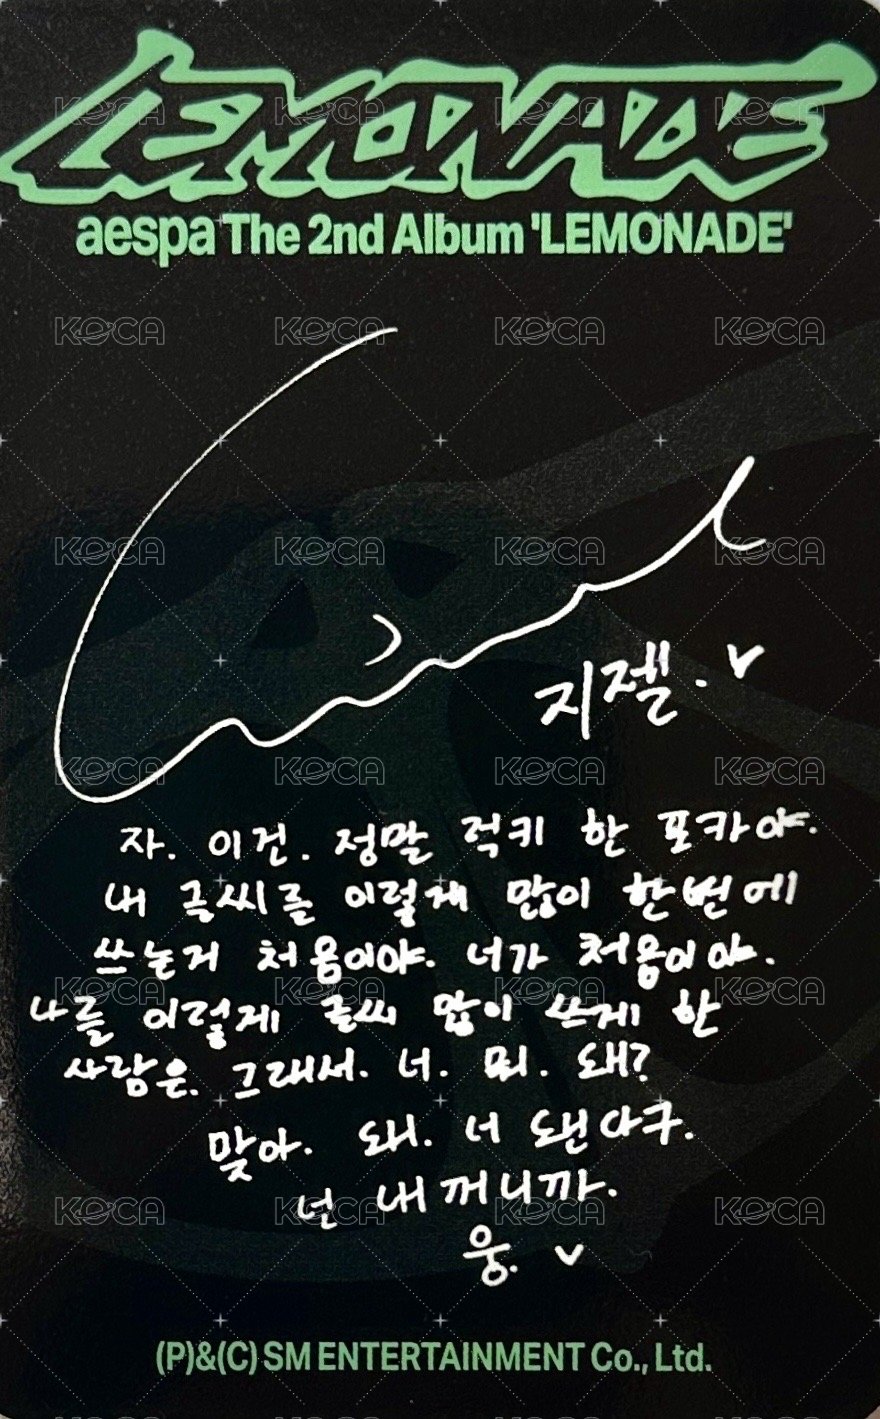 LEMONADE
aespa The 2nd Album 'LEMONADE'
지젤.
자. 이건. 정말 럭키 한 포카야.
내 글씨를 이렇게 많이 한번에
쓰는거 처음이야. 너가 처음이야.
나를 이렇게 글씨 많이 쓰게 한
사람은. 그래서. 너. 뭐. 돼?
맞아. 돼. 너 됀다구.
넌 내꺼니까.
웅.
(P)&(C) SM ENTERTAINMENT Co., Ltd.
KOCA